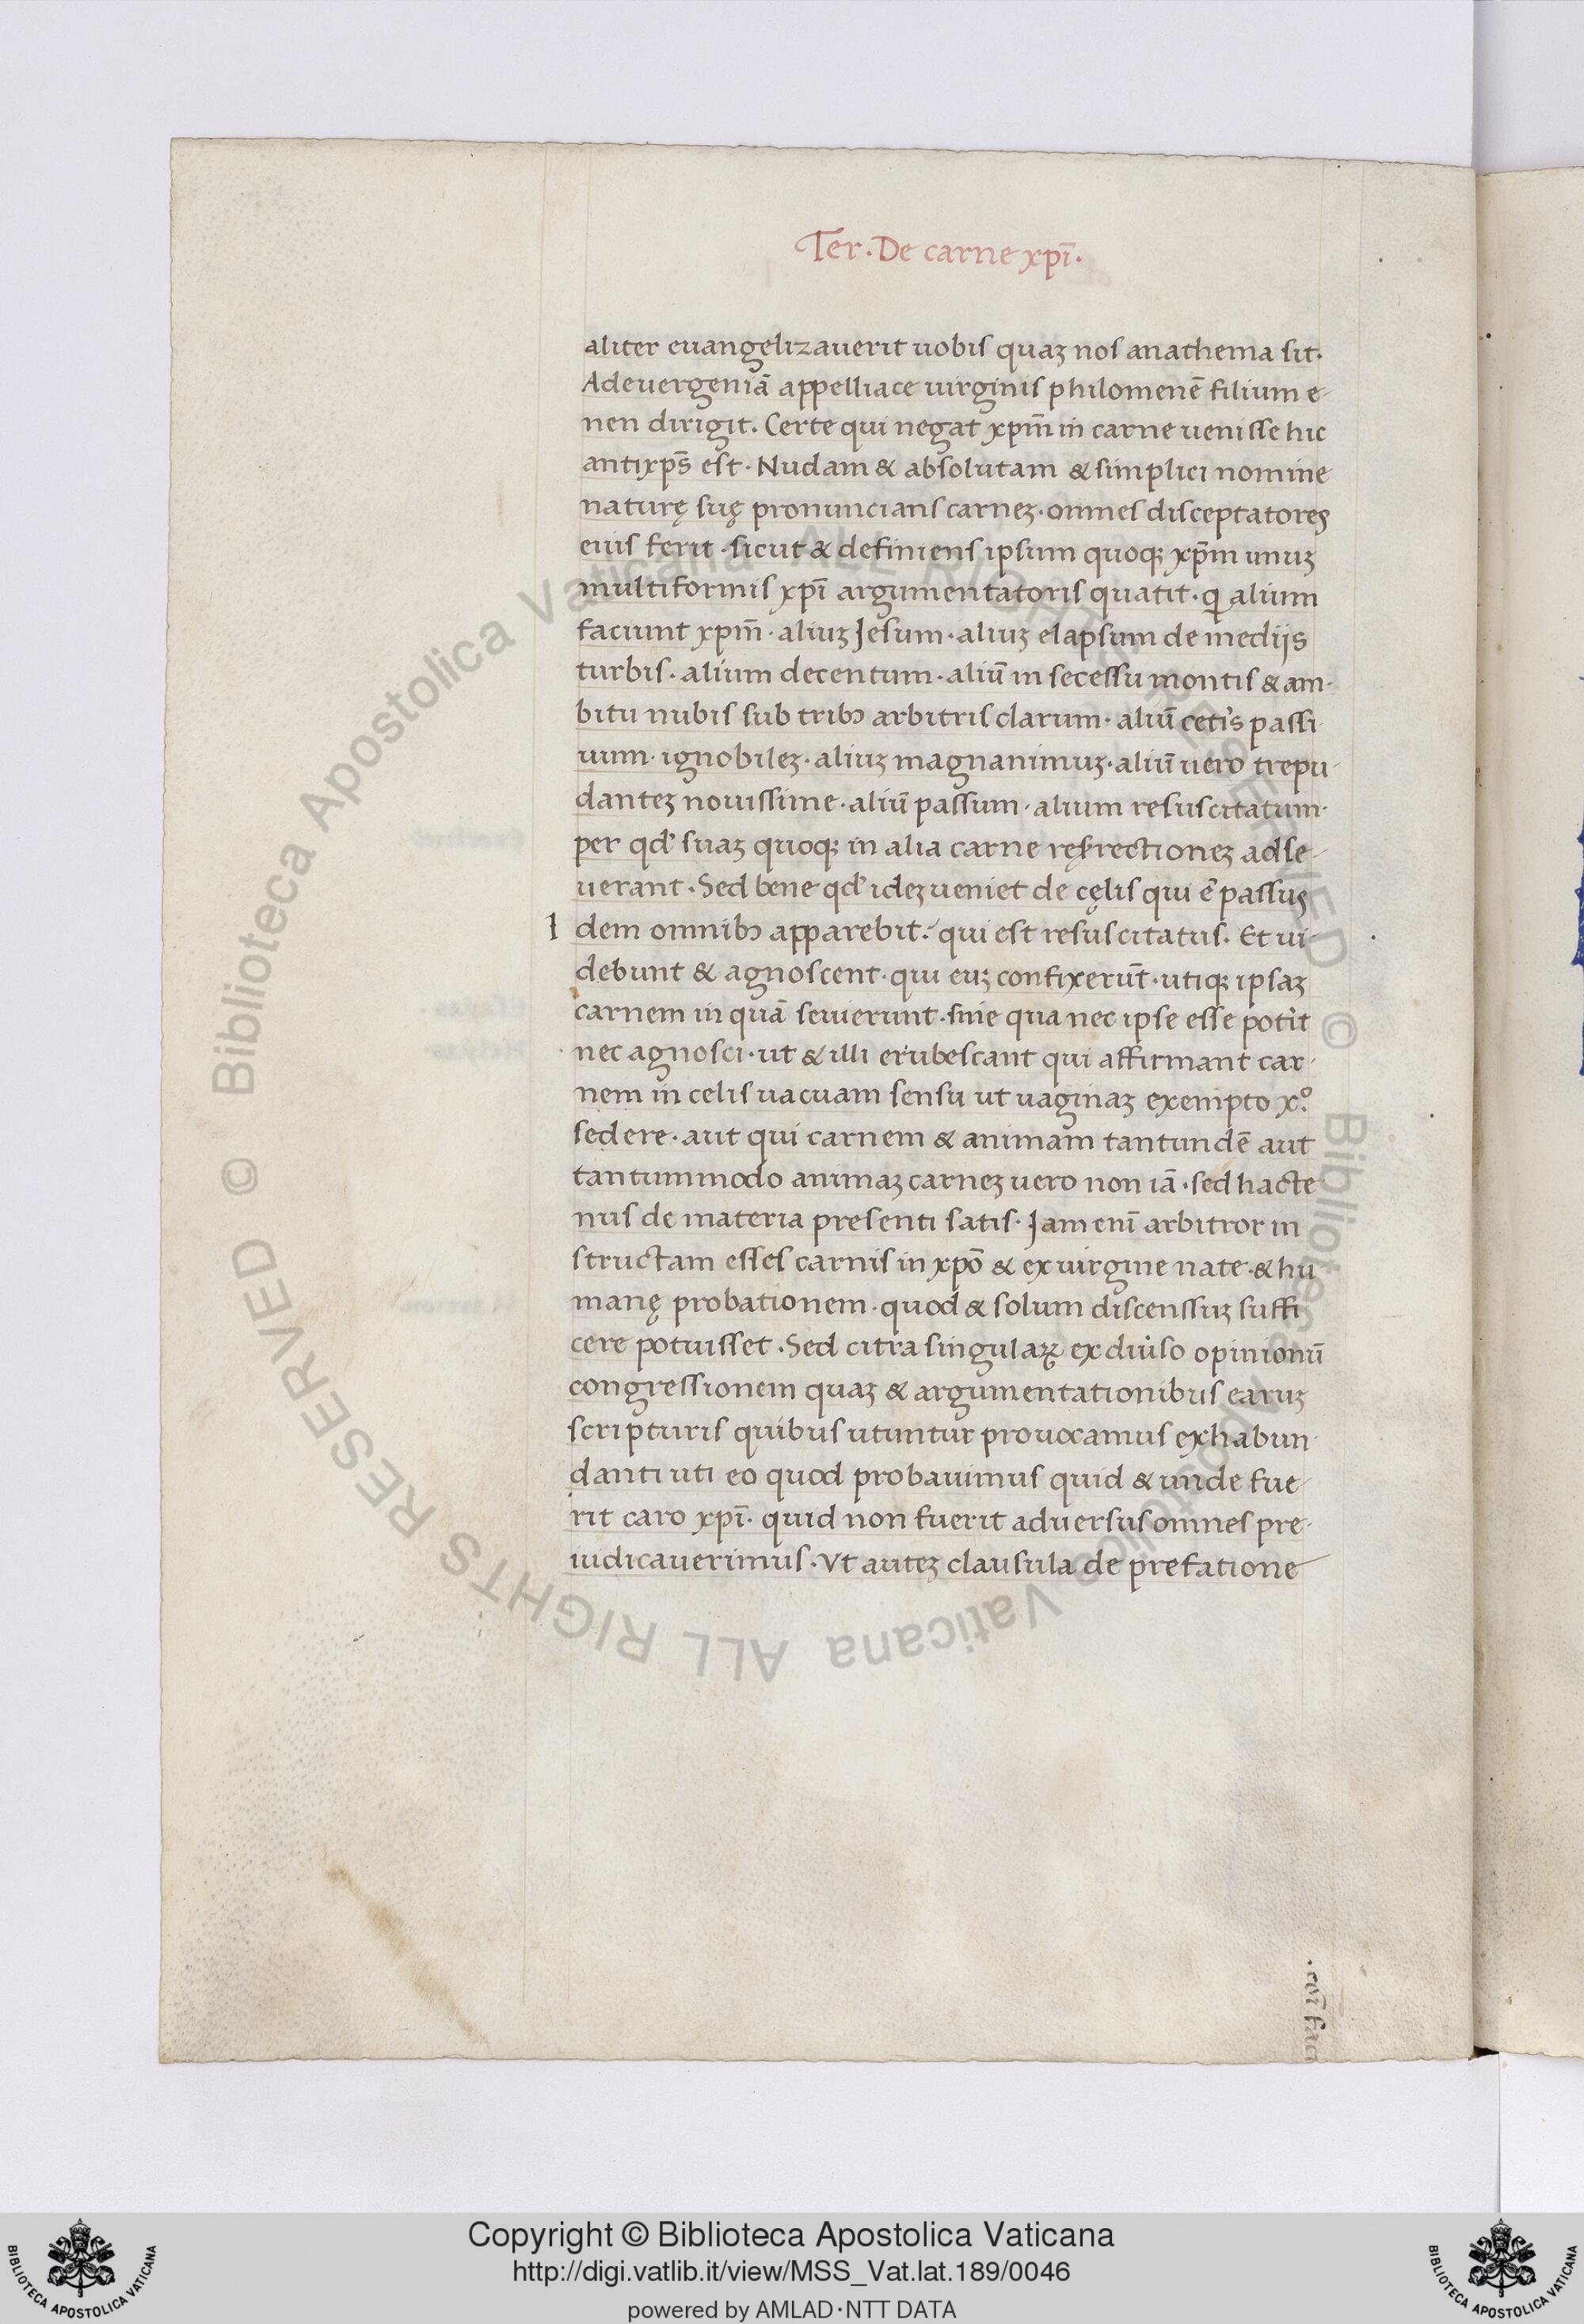 Ter. De carne xp̄i.
aliter euangelizauerit uobis quaꝫ nos anathema sit.
Adeuergeniā appelliace uirginis philomenē filium e-
nen dirigit. Certe qui negat xp̄m in carne uenisse hic
antixp̄s est. Nudam & absolutam & simplici nomine
naturę suę pronuncians carneꝫ. omnes disceptatores
eius ferit. sicut & definiens ipsum quoqꝫ xp̄m unuꝫ
multiformis xp̄i argumentatoris quatit. q̣ alium
faciunt xp̄m. aliuꝫ Jesum. aliuꝫ elapsum de medijs
turbis. alium decentum. aliū in secessu montis & am-
bitu nubis sub tribꝫ arbitris clarum. aliū cetis passi
uum. ignobileꝫ. aliuꝫ magnanimuꝫ. aliū uero trepu-
danteꝫ nouissime. aliū passum. alium resuscitatum.
per qd' suaꝫ quoqꝫ in alia carne ręsrectioneꝫ adse-
uerant. Sed bene qd' ideꝫ ueniet de cęlis qui ē passus
I dem omnibꝫ apparebit. qui est resuscitatus. Et ui-
debunt & agnoscent. qui euꝫ confixerūt. utiqꝫ ipsaꝫ
carnem in quā seuierunt. sine qua nec ipse esse potit
nec agnosci. ut & illi erubescant qui affirmant car-
nem in celis uacuam sensu ut uaginaꝫ exempto xº.
sedere. aut qui carnem & animam tantundē aut
tantummodo animaꝫ carneꝫ uero non iā. sed hacte
nus de materia presenti satis. Jam enī arbitror in
structam esses carnis in xp̄o & ex uirgine nate. & hu
manę probationem. quod & solum discenssuꝫ suffi
cere potuisset. Sed citra singulaꝝ ex diuso opinionū
congressionem quaꝫ & argumentationibus earuꝫ
scripturis quibus utuntur prouocamus exhabun-
danti uti eo quod probauimus quid & unde fue-
rit caro xp̄i. quid non fuerit aduersus omnes pre-
iudicauerimus. Vt auteꝫ clausula de prefatione
Copyright © Biblioteca Apostolica Vaticana
http://digi.vatlib.it/view/MSS_Vat.lat.189/0046
powered by AMLAD·NTT DATA
© Biblioteca Apostolica Vaticana ALL RIGHTS RESERVED © Biblioteca Apostolica Vaticana ALL RIGHTS RESERVED
BIBLIOTECA APOSTOLICA VATICANA
BIBLIOTECA APOSTOLICA VATICANA